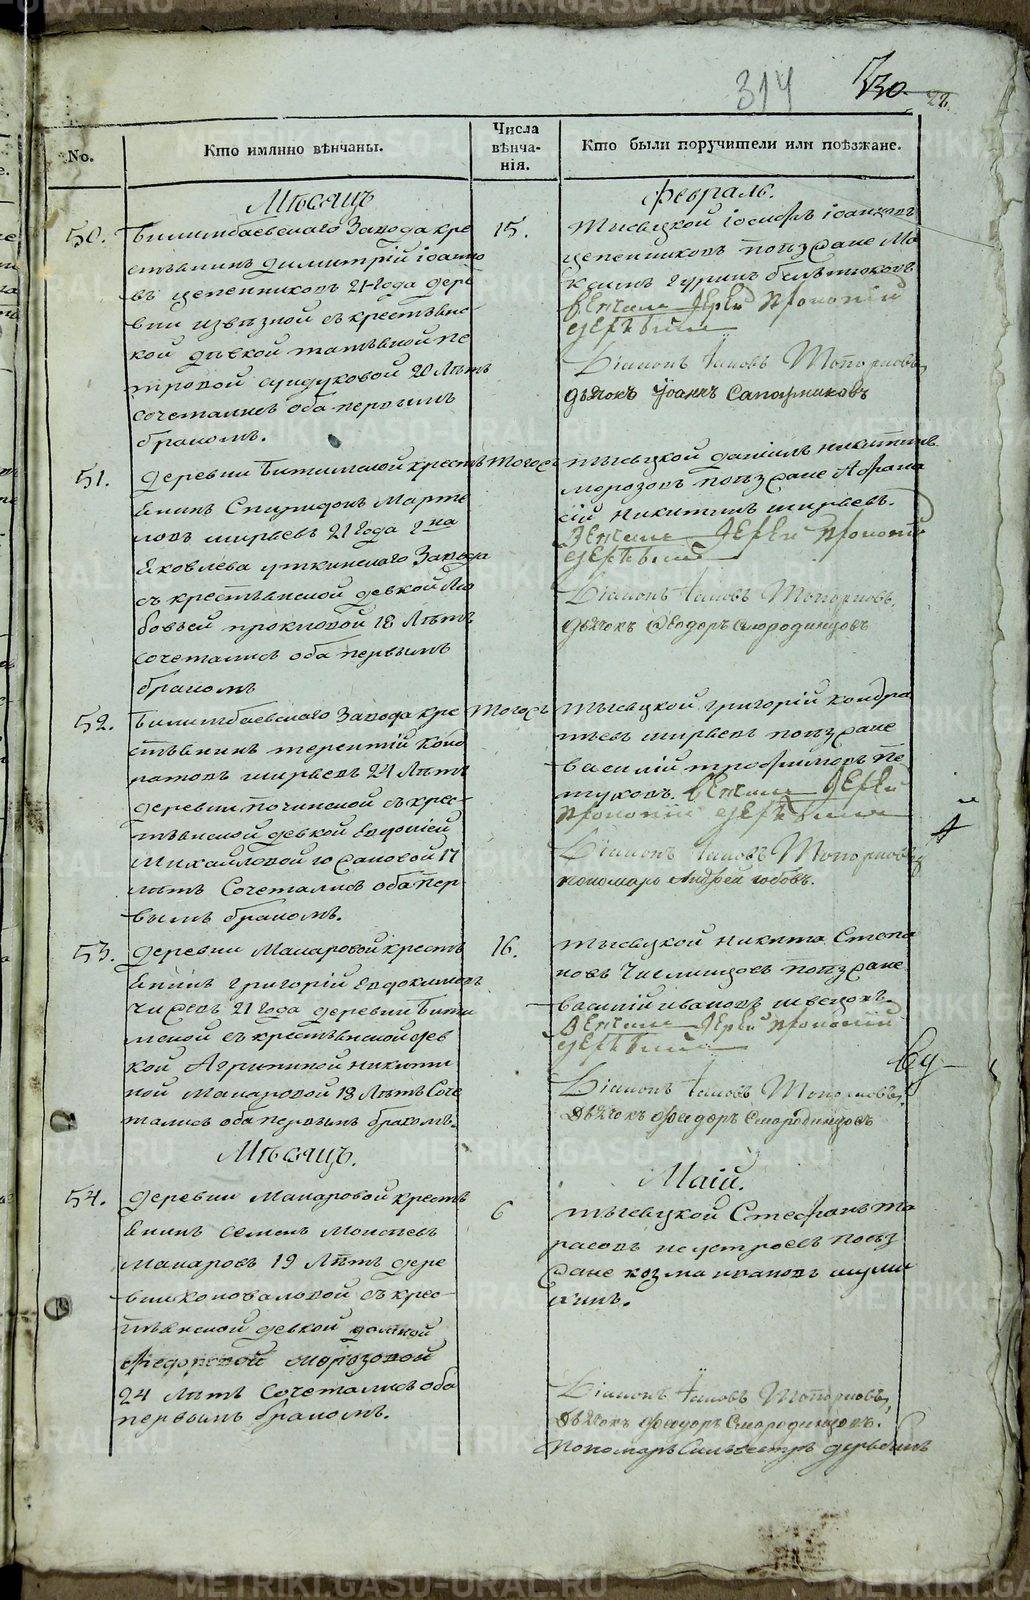 314 730 22.
No. Кто имянно вѣнчаны. Числа вѣнчанія. Кто были поручители или поѣзжане.
Мѣсяцъ Февраль.
50. Билимбаевскаго Завода кре
стьянинъ димитрій іоанно
въ цепенниковъ 21 года дере
вни извѣзной съ крестьянс
кой дѣвкой татьяной пе
тровой сундуковой 20 Лѣтъ
сочетались оба первымъ
бракомъ.
15.
тысяцкой іосифъ іоанновъ
цепенниковъ поѣзжане Ма
ксимъ гуринъ
Венчалъ Іерей Прокопій
Діаконъ Іаковъ Топорковъ,
дьячокъ Іоаннъ Сапожниковъ
51. деревни Битимской кресть
янинъ Спиридонъ Марте
ловъ ширяевъ 21 года г-на
Яковлева уткинскаго Завода
съ крестьянской девкой Лю
бовьей проковой 18 Лѣтъ
сочетались оба первымъ
бракомъ
тогожъ
тысяцкой даніилъ никитинъ
морозовъ поѣзжане Афана
сій никитинъ ширяевъ.
Венчалъ Іерей Прокопій
Діаконъ Іаковъ Топорковъ,
дьячокъ Ѳеодоръ Смородинцовъ
52. Билимбаевскаго Завода кре
стьянинъ терентій Конд
ратовъ ширяевъ 24 Лѣтъ
деревни починской съ крес
тьянской девкой Евдокіей
Михайловой южаковой 17
лѣтъ Сочетались оба пер
вымъ бракомъ.
тогожъ
тысяцкой григорій кондра
тьевъ ширяевъ поѣзжане
василій трофимовъ пе
туховъ. Венчалъ Іерей
Прокопій
Діаконъ Іаковъ Топорковъ
пономарь Андрей
53. деревни Макаровой кресть
янинъ григорій евдокимовъ
чижевъ 21 года деревни Бити
мской съ крестьянской дев
кой Агрипиной никити
ной Макаровой 18 Лѣтъ Соче
тались оба первымъ бракомъ.
16.
тысяцкой никита Степа
новъ Числинцовъ поѣзжане
василій ивановъ швецовъ
Венчалъ Іерей Прокопій
Діаконъ Іаковъ Топорковъ,
дьячокъ Ѳеодоръ Смородинцовъ
Мѣсяцъ. Маій.
54. деревни Макаровой кресть
янинъ семенъ Моисеевъ
макаровъ 19 Лѣтъ дере
вни коноваловой съ крес
тьянской девкой домной
федоровой морозовой
24 лѣтъ Сочетались оба
первымъ бракомъ.
6
тысяцкой Стефанъ та
расовъ неустроевъ поѣз
жане козма ивановъ
Діаконъ Іаковъ Топорковъ,
дьячокъ Ѳеодоръ Смородинцовъ.
Пономарь Сильвестръ дерябинъ
METRIKI.GASO-URAL.RU